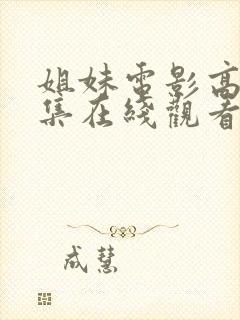 姐妹電影高
集在綫觀看
成慧